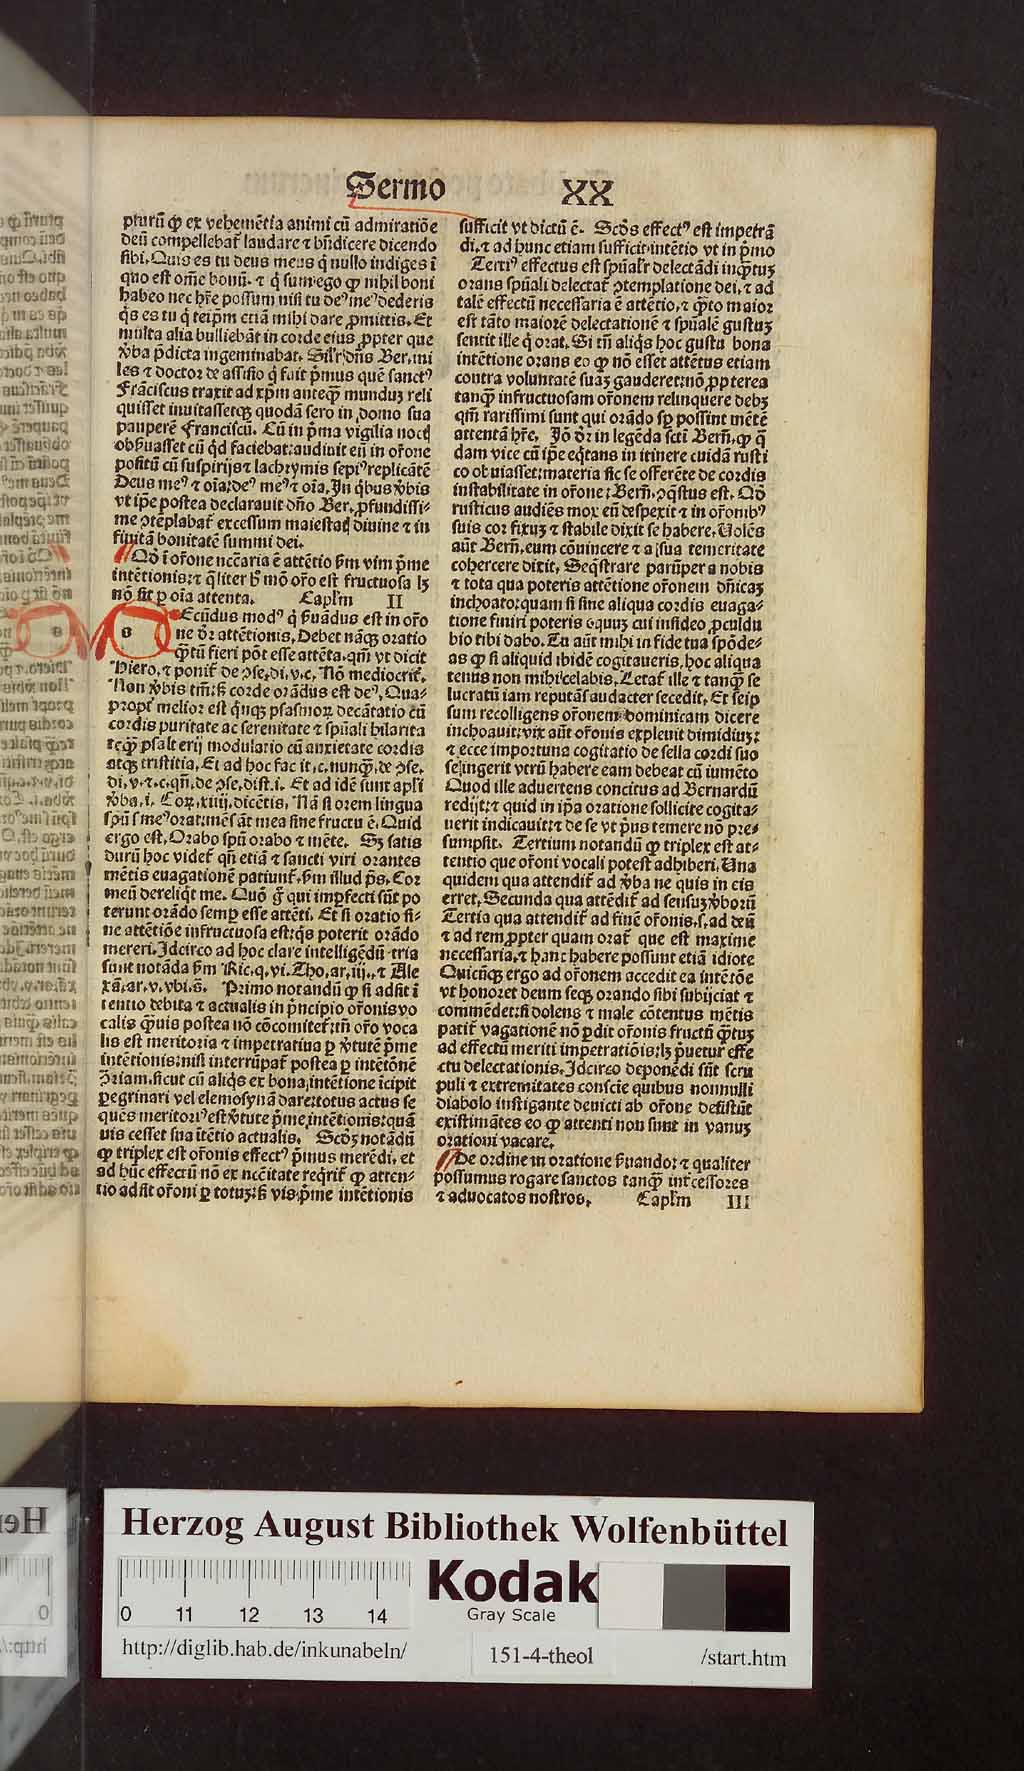 Sermo XX
pturū ꝙ ex vehemētia animi cū admiratiōe
deū compellebat̄ laudare ⁊ bn̄dicere dicendo
sibi. Quis es tu deus meus q̇ nullo indiges ī
quo est om̄e bonū. ⁊ q̇ sum ego ꝙ nihil boni
habeo nec hr̄e possum nisi tu deꝰ meꝰ dederis
q̇s es tu q̇ teip̄m etiā mihi dare ꝓmittis. Et
multa alia bulliebāt in corde eius ꝓpter que
v̄ba p̄dicta ingeminabat. Sil̄r dn̄s Ber. mi
les ⁊ doctor de assisio q̇ fuit p̄mus quē sanctꝰ
Frāciscus traxit ad xp̄m anteqꝫ munduꝫ reli
quisset inuitassetqꝫ quodā sero in domo sua
pauperē Franciscū. Cū in p̄ma vigilia noct̄
obẜuasset cū q̇d faciebat: audiuit eū in or̄one
positū cū suspirijs ⁊ lachrymis sepiꝰ replicātē
Deus meꝰ ⁊ oīa: deꝰ meꝰ ⁊ oīa. In q̇bus v̄bis
vt ip̄e postea declarauit dn̄o Ber. ꝓfundissi-
me ꝯtēplabat̄ excessum maiestat̄ diuine ⁊ in
finitā bonitatē summi dei.
Qd̄ ī or̄one nc̄caria ē attētio ẜm vim p̄me
intētionis: ⁊ q̄liter h̄ mō or̄o est fructuosa lꝫ
nō sit ꝑ oīa attenta. Capl̄m II
s Ecūdus modꝰ q̇ ẜuādus est in or̄o
ne d̄r attētionis. Debet nāqꝫ oratio
ꝙ̄tū fieri pōt esse attēta. qm̄ vt dicit
Hiero. ⁊ ponit̄ de ꝯse. di. v. c. Nō mediocrit̄.
Non v̄bis tm̄: ẜ corde orādus est deꝰ. Qua-
propt̄ melior est q̇nqꝫ psalmoꝝ decātatio cū
cordis puritate ac serenitate ⁊ spūali hilarita
te: qꝫ psalterij modulatio cū anxietate cordis
atqꝫ tristitia. Et ad hoc facit. c. nunqꝫ. de ꝯse.
di. v. ⁊. c. qn̄. de ꝯse. dist. i. Et ad idē sunt apl̄i
v̄ba. i. Coꝝ. xiiij. dicētis. Nā si orem lingua
spūs meꝰ orat: mēs āt mea sine fructu ē. Quid
ergo est. Orabo spū orabo ⁊ mēte. Sꝫ satis
durū hoc videt̄ qn̄ etiā ⁊ sancti viri orantes
mētis euagationē patiunt̄. ẜm illud p̄s. Cor
meū dereliq̇t me. Quō ḡ qui imꝑfecti sūt po
terunt orādo semꝑ esse attēti. Et si oratio si-
ne attētiōe infructuosa est: q̇s poterit orādo
mereri. Idcirco ad hoc clare intelligēdū tria
sunt notāda ẜm Ric. q. vi. Tho. ar. iij. ⁊ Ale
xā. ar. v. vbi. s. Primo notandū ꝙ si adsit ī
tentio debita ⁊ actualis in p̄ncipio or̄onis vo
calis q̄uis postea nō cōcomitet̄: tn̄ or̄o voca
lis est meritoria ⁊ impetratiua ꝑ v̄tutē p̄me
intētionis: nisi interrūpat̄ postea ꝑ intētōnē
ꝯ̄riam. sicut cū aliq̇s ex bona intētione īcipit
ꝑegrinari vel elemosynā dare: totus actus se
quēs meritoriꝰ est v̄tute p̄me intētionis: quā
uis cesset sua ītētio actualis. Scd̄ꝫ notādū
ꝙ triplex est or̄onis effectꝰ. p̄mus merēdi. et
ad hūc effectū nō ex ncc̄itate req̇rit̄ ꝙ atten-
tio adsit or̄oni ꝑ totuꝫ: ẜ vis p̄me intētionis
sufficit vt dictū ē. Scd̄s effectꝰ est impetrā
di. ⁊ ad hunc etiam sufficit intētio vt in p̄mo
Tertiꝰ effectus est spūal̄r delectādi inq̄tuꝫ
orans spūali delectat̄ ꝯtemplatione dei. ⁊ ad
talē effectū necessaria ē attētio. ⁊ q̄to maior
est tāto maiorē delectationē ⁊ spūalē gustuꝫ
sentit ille q̇ orat. Si tn̄ aliq̇s hoc gustu bona
intētione orans eo ꝙ nō esset attētus etiam
contra voluntatē suaꝫ gauderet: nō ꝓpterea
tanqꝫ infructuosam or̄onem relinquere debꝫ
qm̄ rarissimi sunt qui orādo sꝑ possint mētē
attentā hr̄e. Iō d̄r in legēda sct̄i Bern̄. ꝙ q̄
dam vice cū ip̄e eq̇tans in itinere cuidā rusti
co obuiasset: materia sic se offerēte de cordis
instabilitate in or̄one: Bern̄. ꝯq̄stus est. Qd̄
rusticus audiēs mox eū despexit ⁊ in or̄onibꝰ
suis cor fixuꝫ ⁊ stabile dixit se habere. Uolēs
aūt Bern̄. eum cōuincere ⁊ a sua temeritate
cohercere dixit. Seq̄strare parūper a nobis
⁊ tota qua poteris attētione or̄onem dn̄icaꝫ
inchoato: quam si sine aliqua cordis euaga-
tione finiri poteris equuꝫ cui insideo ꝓculdu
bio tibi dabo. Tu aūt mihi in fide tua spōde-
as ꝙ si aliquid ibidē cogitaueris. hoc aliqua
tenus non mihi celabis. Letat̄ ille ⁊ tanqꝫ se
lucratū iam reputās audacter secedit. Et seip
sum recolligens or̄onem dominicam dicere
inchoauit: vix aūt or̄onis expleuit dimidiuꝫ:
⁊ ecce importuna cogitatio de sella cordi suo
se ingerit vtrū habere eam debeat cū iumēto
Quod ille aduertens concitus ad Bernardū
redijt: ⁊ quid in ip̄a oratione sollicite cogita-
uerit indicauit: ⁊ de se vt p̄us temere nō pre-
sumpsit. Tertium notandū ꝙ triplex est at-
tentio que or̄oni vocali potest adhiberi. Una
quidem qua attendit̄ ad v̄ba ne quis in eis
erret. Secunda qua attēdit̄ ad sensuꝫ v̄borū
Tertia qua attendit̄ ad finē or̄onis. s. ad deū
⁊ ad rem ꝓpter quam orat̄ que est maxime
necessaria. ⁊ hanc habere possunt etiā idiote
Quicūqꝫ ergo ad or̄onem accedit ea intētōe
vt honoret deum seqꝫ orando sibi subijciat ⁊
commēdet: si dolens ⁊ male cōtentus mētis
patit̄ vagationē nō ꝑdit or̄onis fructū q̄tuꝫ
ad effectū meriti impetratiōis: lꝫ p̄uetur effe
ctu delectationis. Idcirco deponēdi sūt scru
puli ⁊ extremitates conscie quibus nonnulli
diabolo instigante deuicti ab or̄one desistūt
existimātes eo ꝙ attenti non sunt in vanuꝫ
orationi vacare.
De ordine in oratione ẜuando: ⁊ qualiter
possumus rogare sanctos tanqꝫ int̄cessores
⁊ aduocatos nostros. Capl̄m III
Herzog August Bibliothek Wolfenbüttel
0 11 12 13 14
Kodak
Gray Scale
http://diglib.hab.de/inkunabeln/ 151-4-theol /start.htm